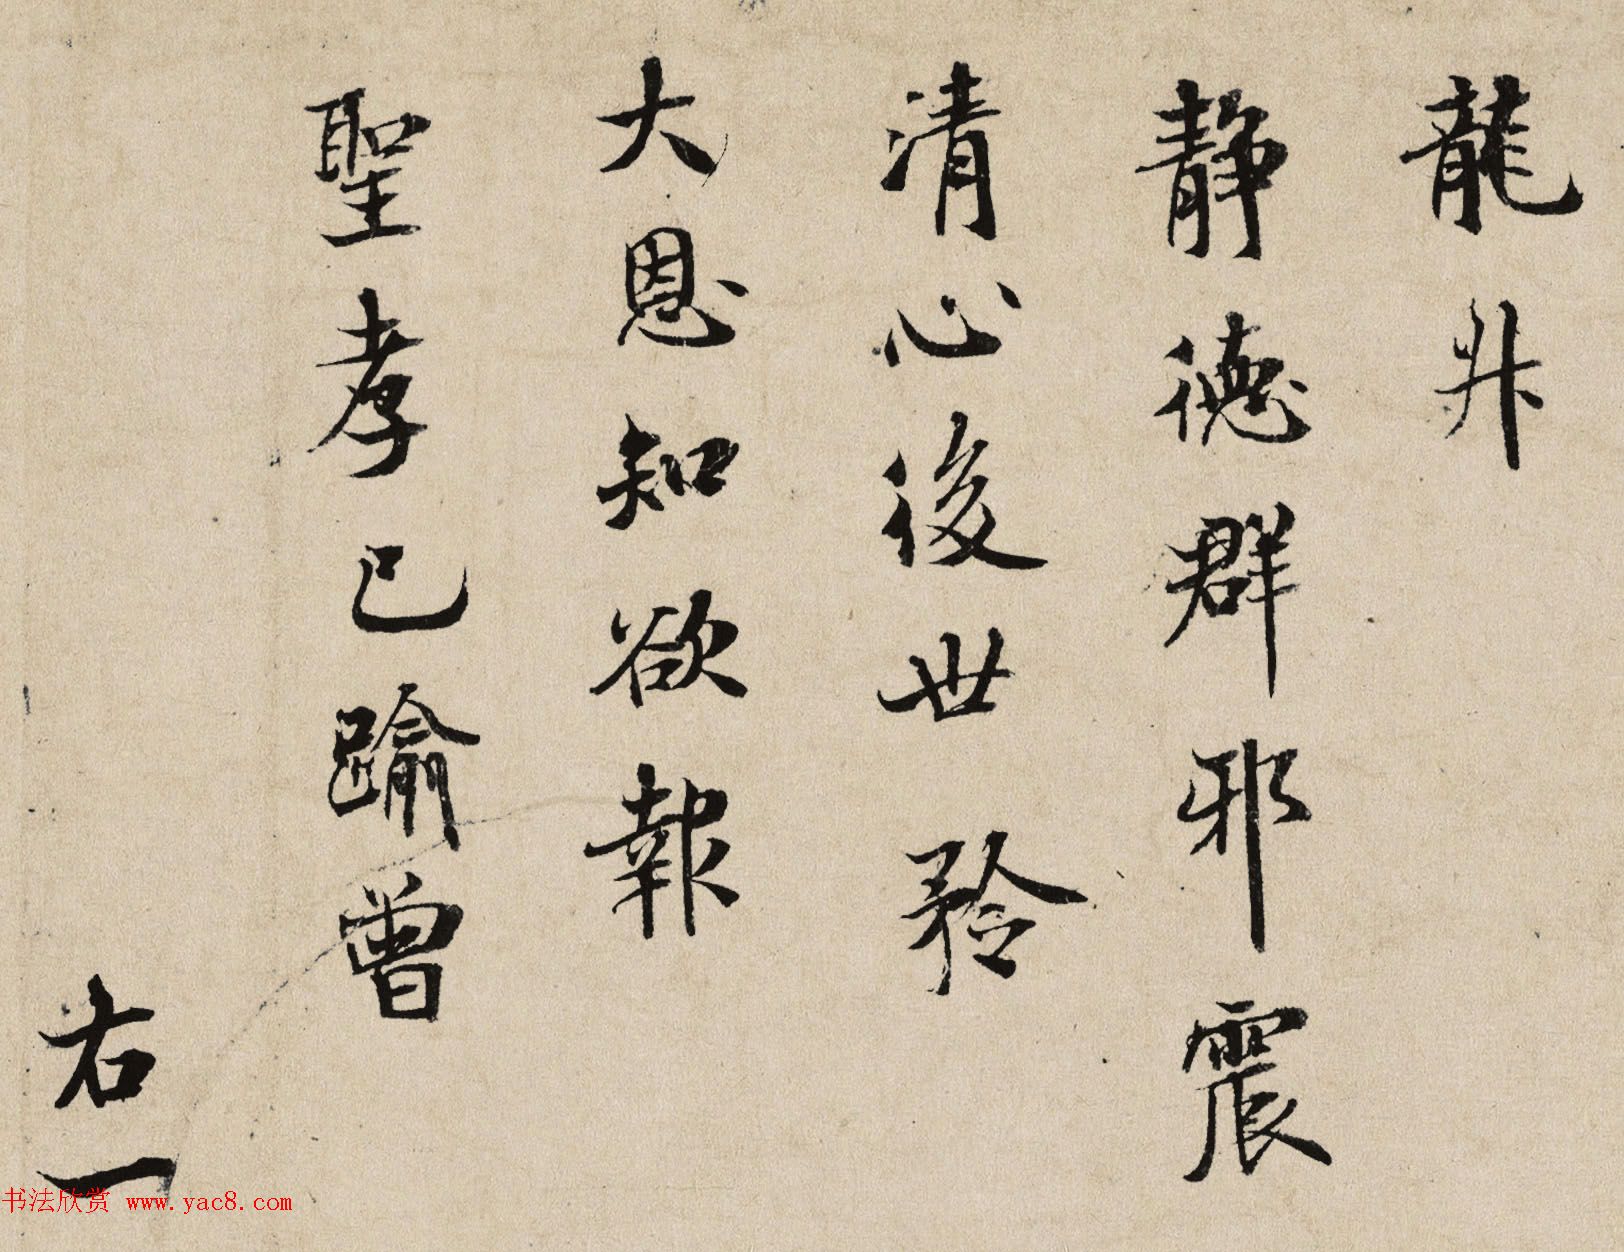 龍升
静德群邪震
清心後世矜
大恩知欲報
聖孝已踰曾
右一
书法欣赏 www.yac8.com